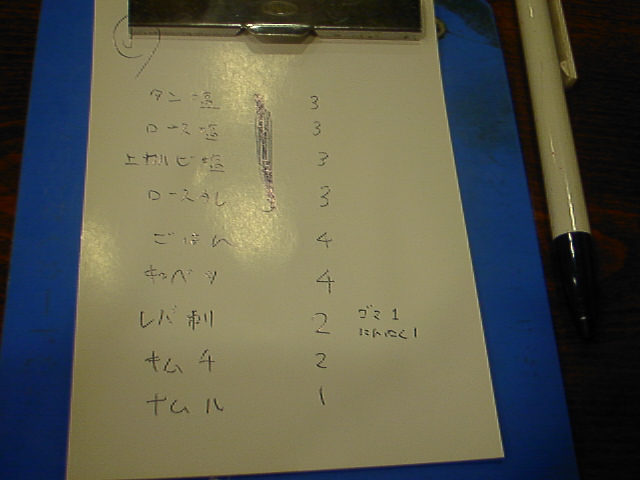 タン塩 3
ロース塩 3
上カルビ塩 3
ロースタレ 3
ごはん 4
キャベツ 4
レバ刺 2 ゴマ1
にんにく1
キムチ 2
ナムル 1